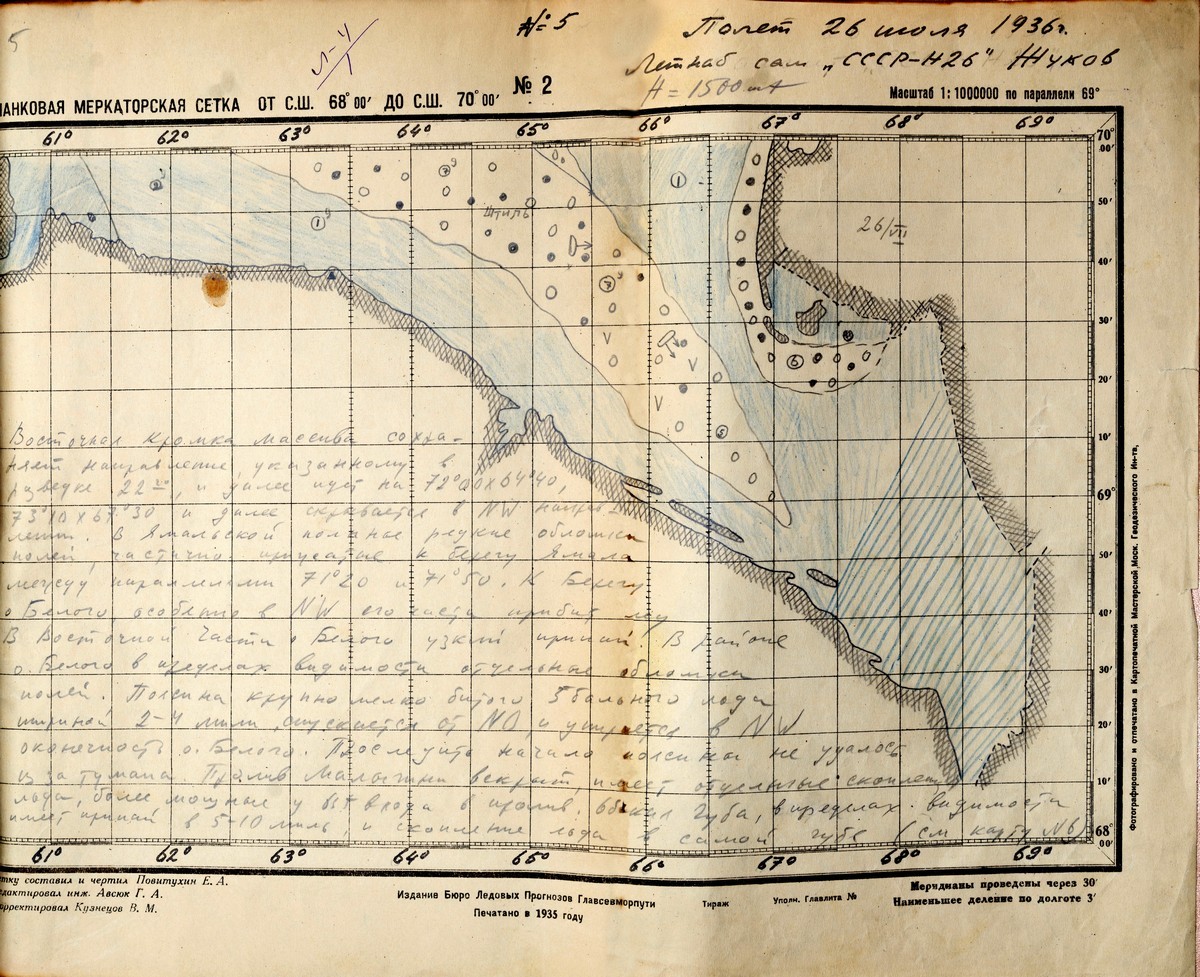 5
№ 5
Л-4
Полет 26 июля 1936г.
Летнаб сам „СССР-Н26" Жуков
H = 1500 mt
№ 2
ЛАНКОВАЯ МЕРКАТОРСКАЯ СЕТКА ОТ С.Ш. 68°00' ДО С.Ш. 70°00'
Масштаб 1:1000000 по параллели 69°
61° 62° 63° 64° 65° 66° 67° 68° 69°
70°
00'
50'
40'
30'
20'
10'
69°
50'
40'
30'
20'
10'
68°
00'
26/VII
штиль
Восточная кромка массива сохра-
няет направление, указанному в
разведке 22, и далее идет на 72°00 x 64°40,
73°10 x 67°30 и далее скрывается в NW направ
лении. В Ямальской полынье редкие обломки
полей, частично прижатые к берегу Ямала
между параллелями 71°20 и 71°50. К берегу
о Белого особенно в NW его части прибит лед
В Восточной части о Белого узкий припай. В районе
о. Белого в пределах видимости отдельные обломки
полей. Полоса крупно мелко битого 5 бального льда
шириной 2-4 мили, спускается от NO, и упирается в NW
оконечность о. Белого. Проследить начало не удалось
из за тумана. Пролив Малыгина вскрыт, имеет отдельные скоплен
льда, более мощные у входа в пролив. Обская Губа, в пределах видимости
имеет припай в 5-10 миль, и скопление льда в самой губе (см карту №6)
61° 62° 63° 64° 65° 66° 67° 68° 69°
тку составил и чертил Повитухин Е. А.
дактировал инж. Авсюк Г. А.
орректировал Кузнецов В. М.
Издание Бюро Ледовых Прогнозов Главсевморпути
Печатано в 1935 году
Тираж
Уполн. Главлита №
Меридианы проведены через 30'
Наименьшее деление по долготе 3'
Фотографировано и отпечатано в Картопечатной Мастерской Моск. Геодезического Ин-та,